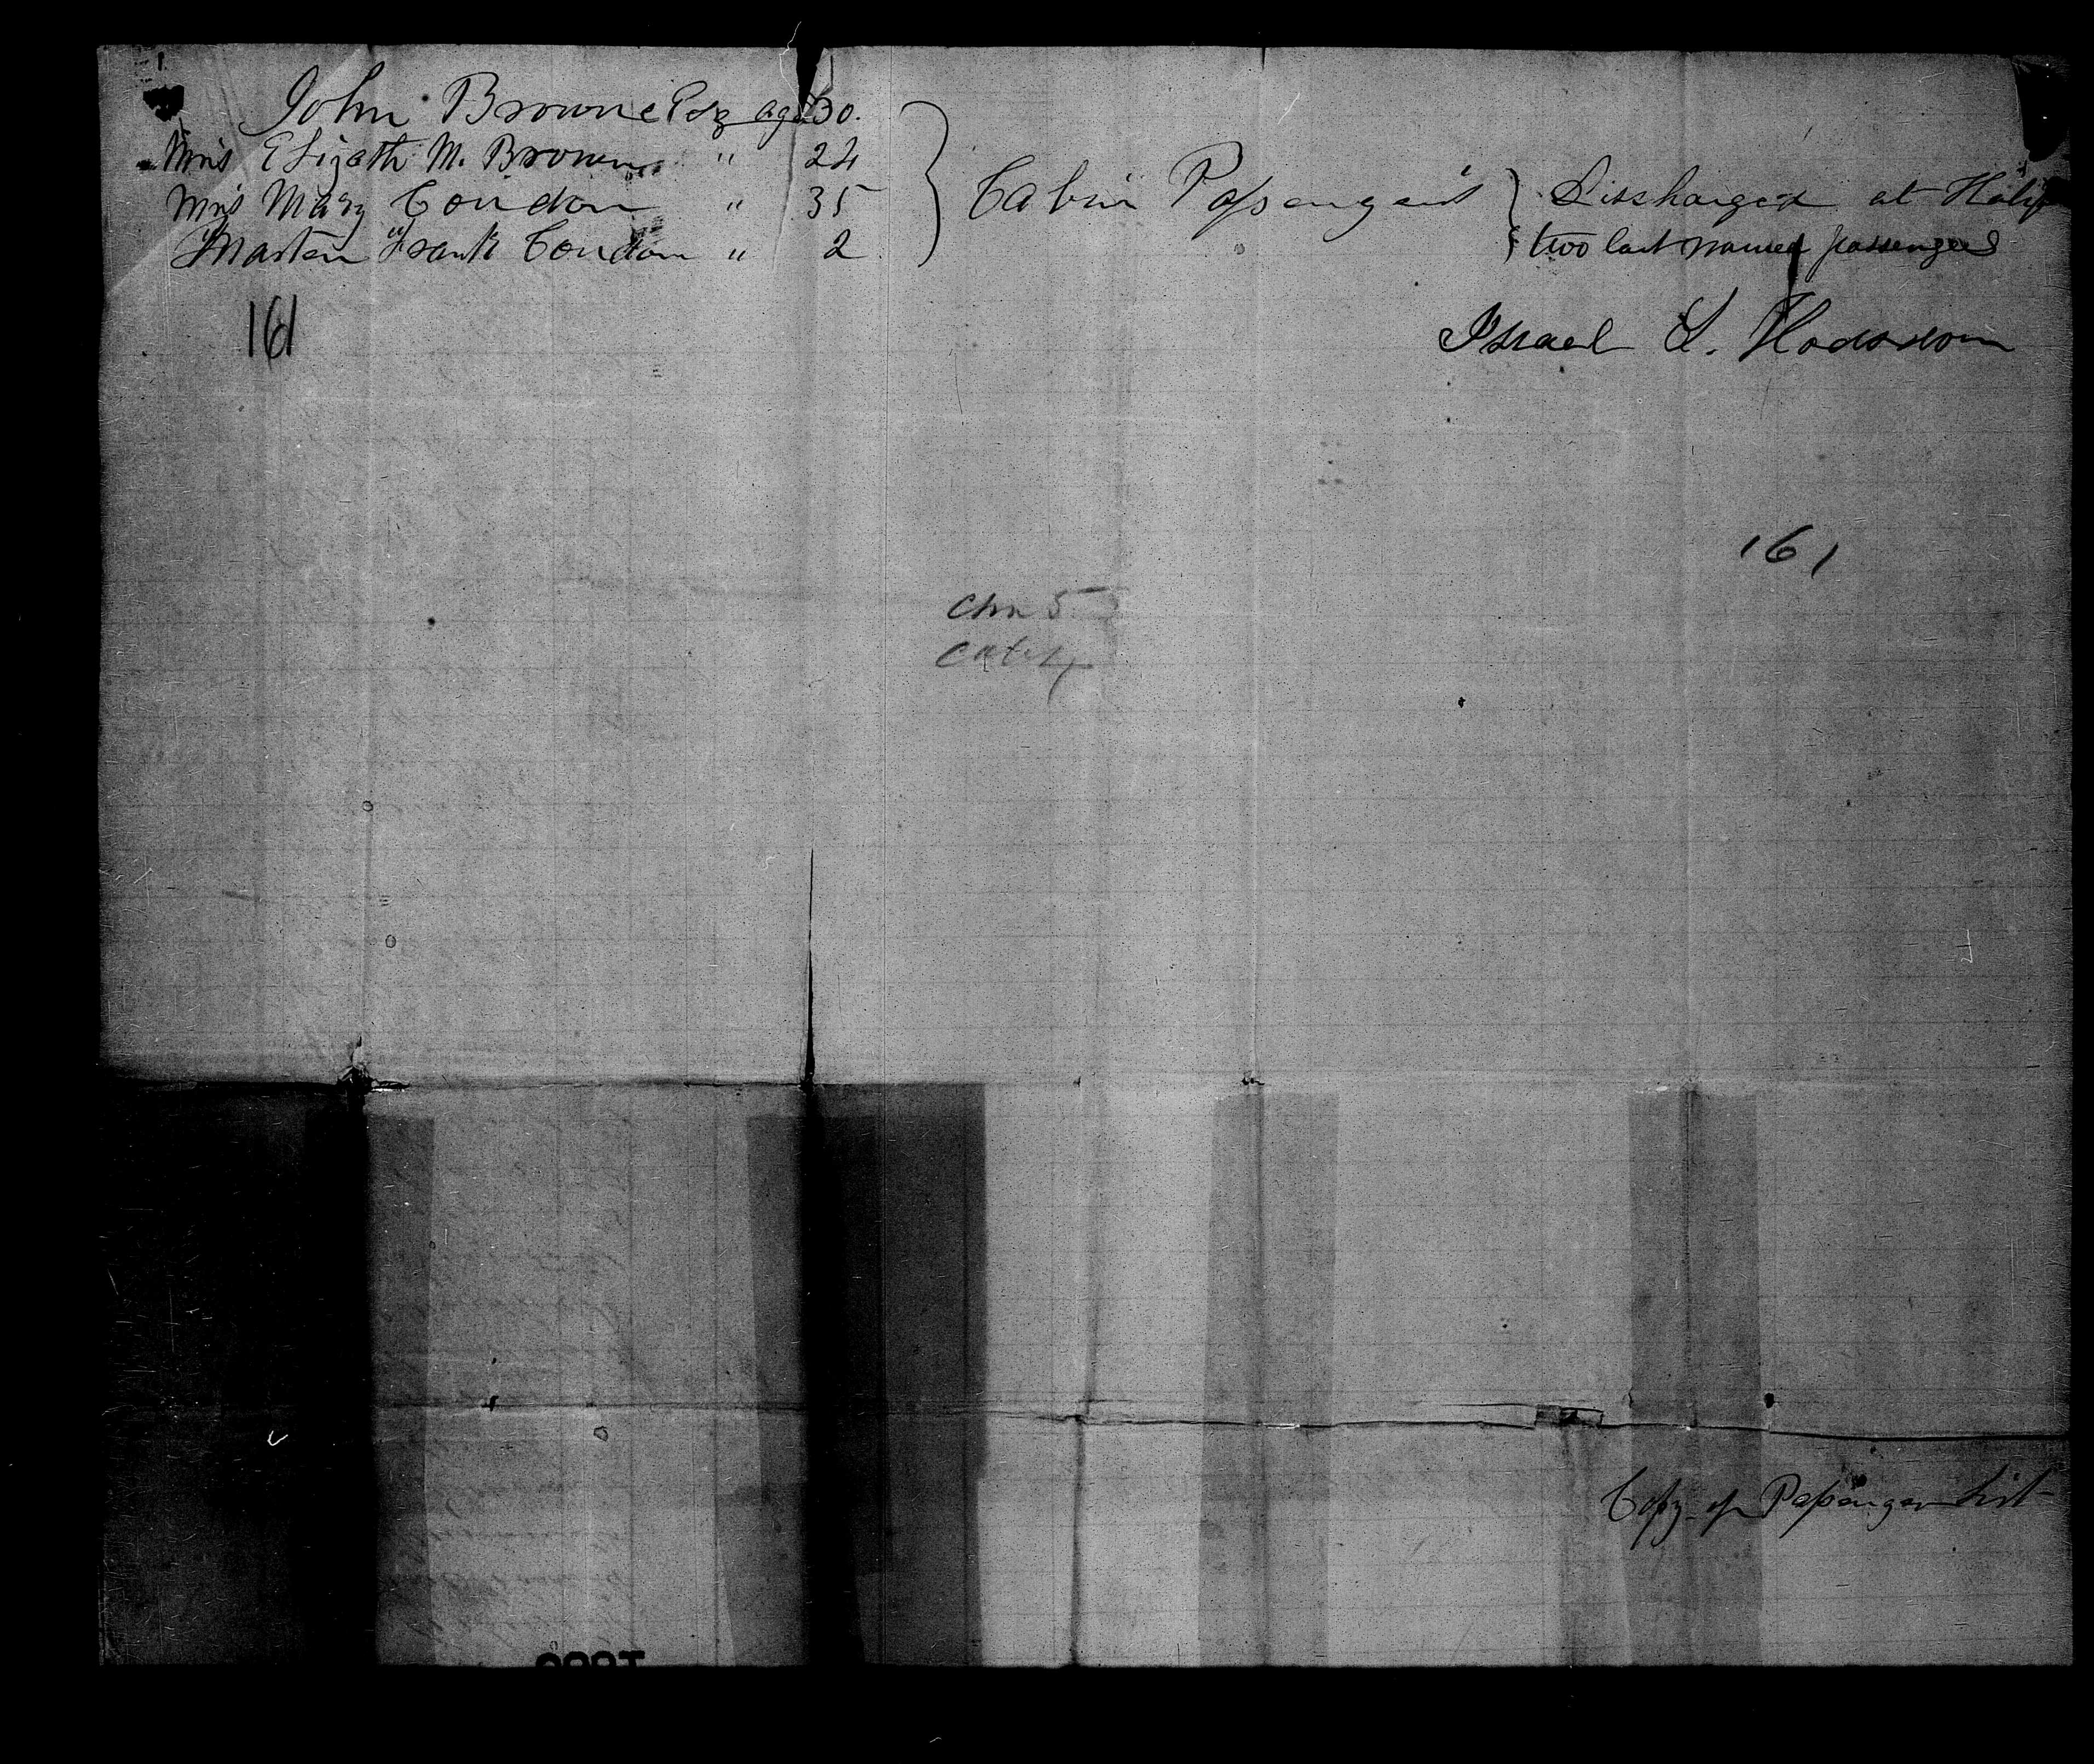 John Browne Esq aged 30.
Mrs Elizath M. Browne " 24
Mrs Mary Condon " 35
Master Frank Condon " 2
Cabin Passengers
Discharged at Halif
two last named passengers
Israel L. Hodsdon
161
161
Chn 5
Cab 4
Copy of Passenger List